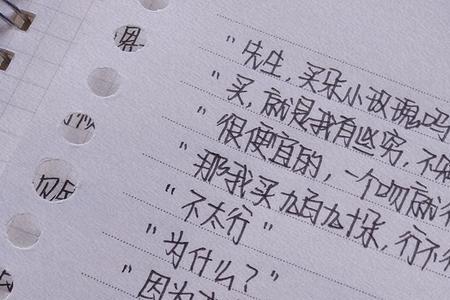 "先生,买张小玫瑰吗
"买,就是我有些穷,不
"很便宜的,一个吻就
"那我买九百九十张,行不行
"不太行"
"为什么?"
"因为